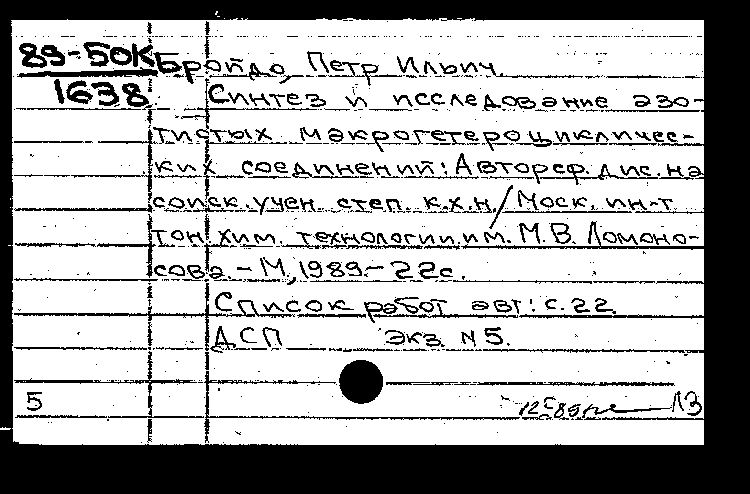 89-50К
1638
Бройдо, Петр Ильич.
Синтез и исследование азо-
тистых макрогетероцикличес-
ких соединений: Автореф. дис. на
соиск. учен. степ. к.х.н. / Моск. ин-т
тон. хим. технологии им. М.В. Ломоно-
сова. - М., 1989. - 22с.
Список работ авт.: с. 22.
ДСП Экз. N 5.
5
ЛЗ